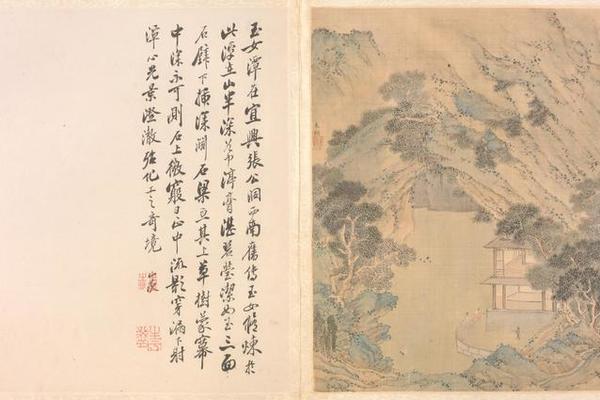 玉女潭在宜興張公洞西南舊傳玉女修煉於
此潭在山半深谷中渟膏湛碧瑩潔如玉三面
石壁下插深淵石梁亘其上草樹蒙羃
中深不可測石上微竅日正中流影穿漏下射
潭心光景澄澈殆化工之奇境